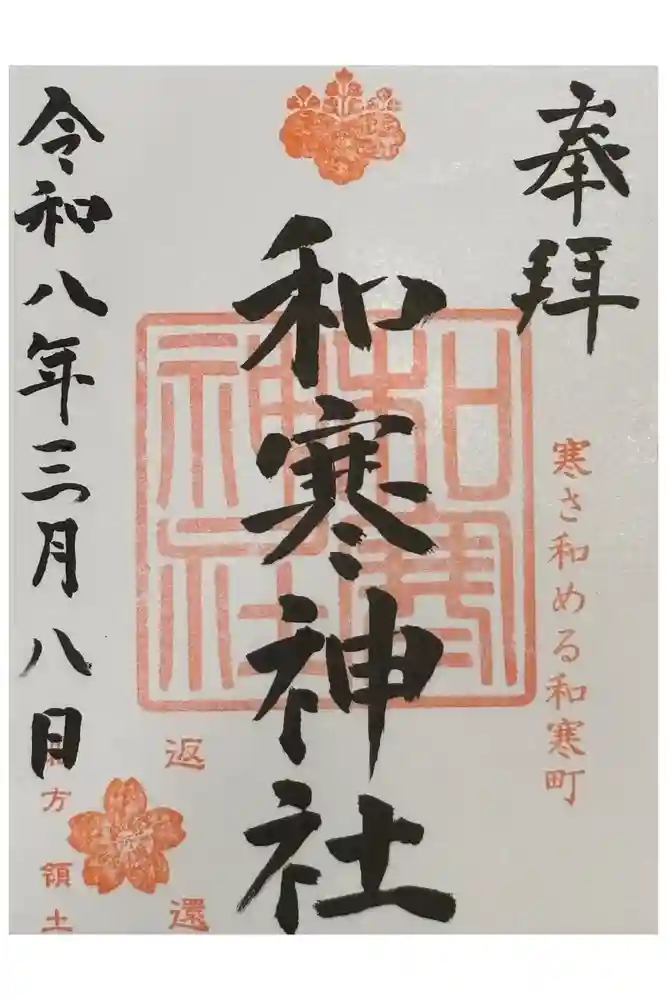 奉拝
寒さ和める和寒町
和寒神社
和寒神社
返還
方領土
令和八年三月八日